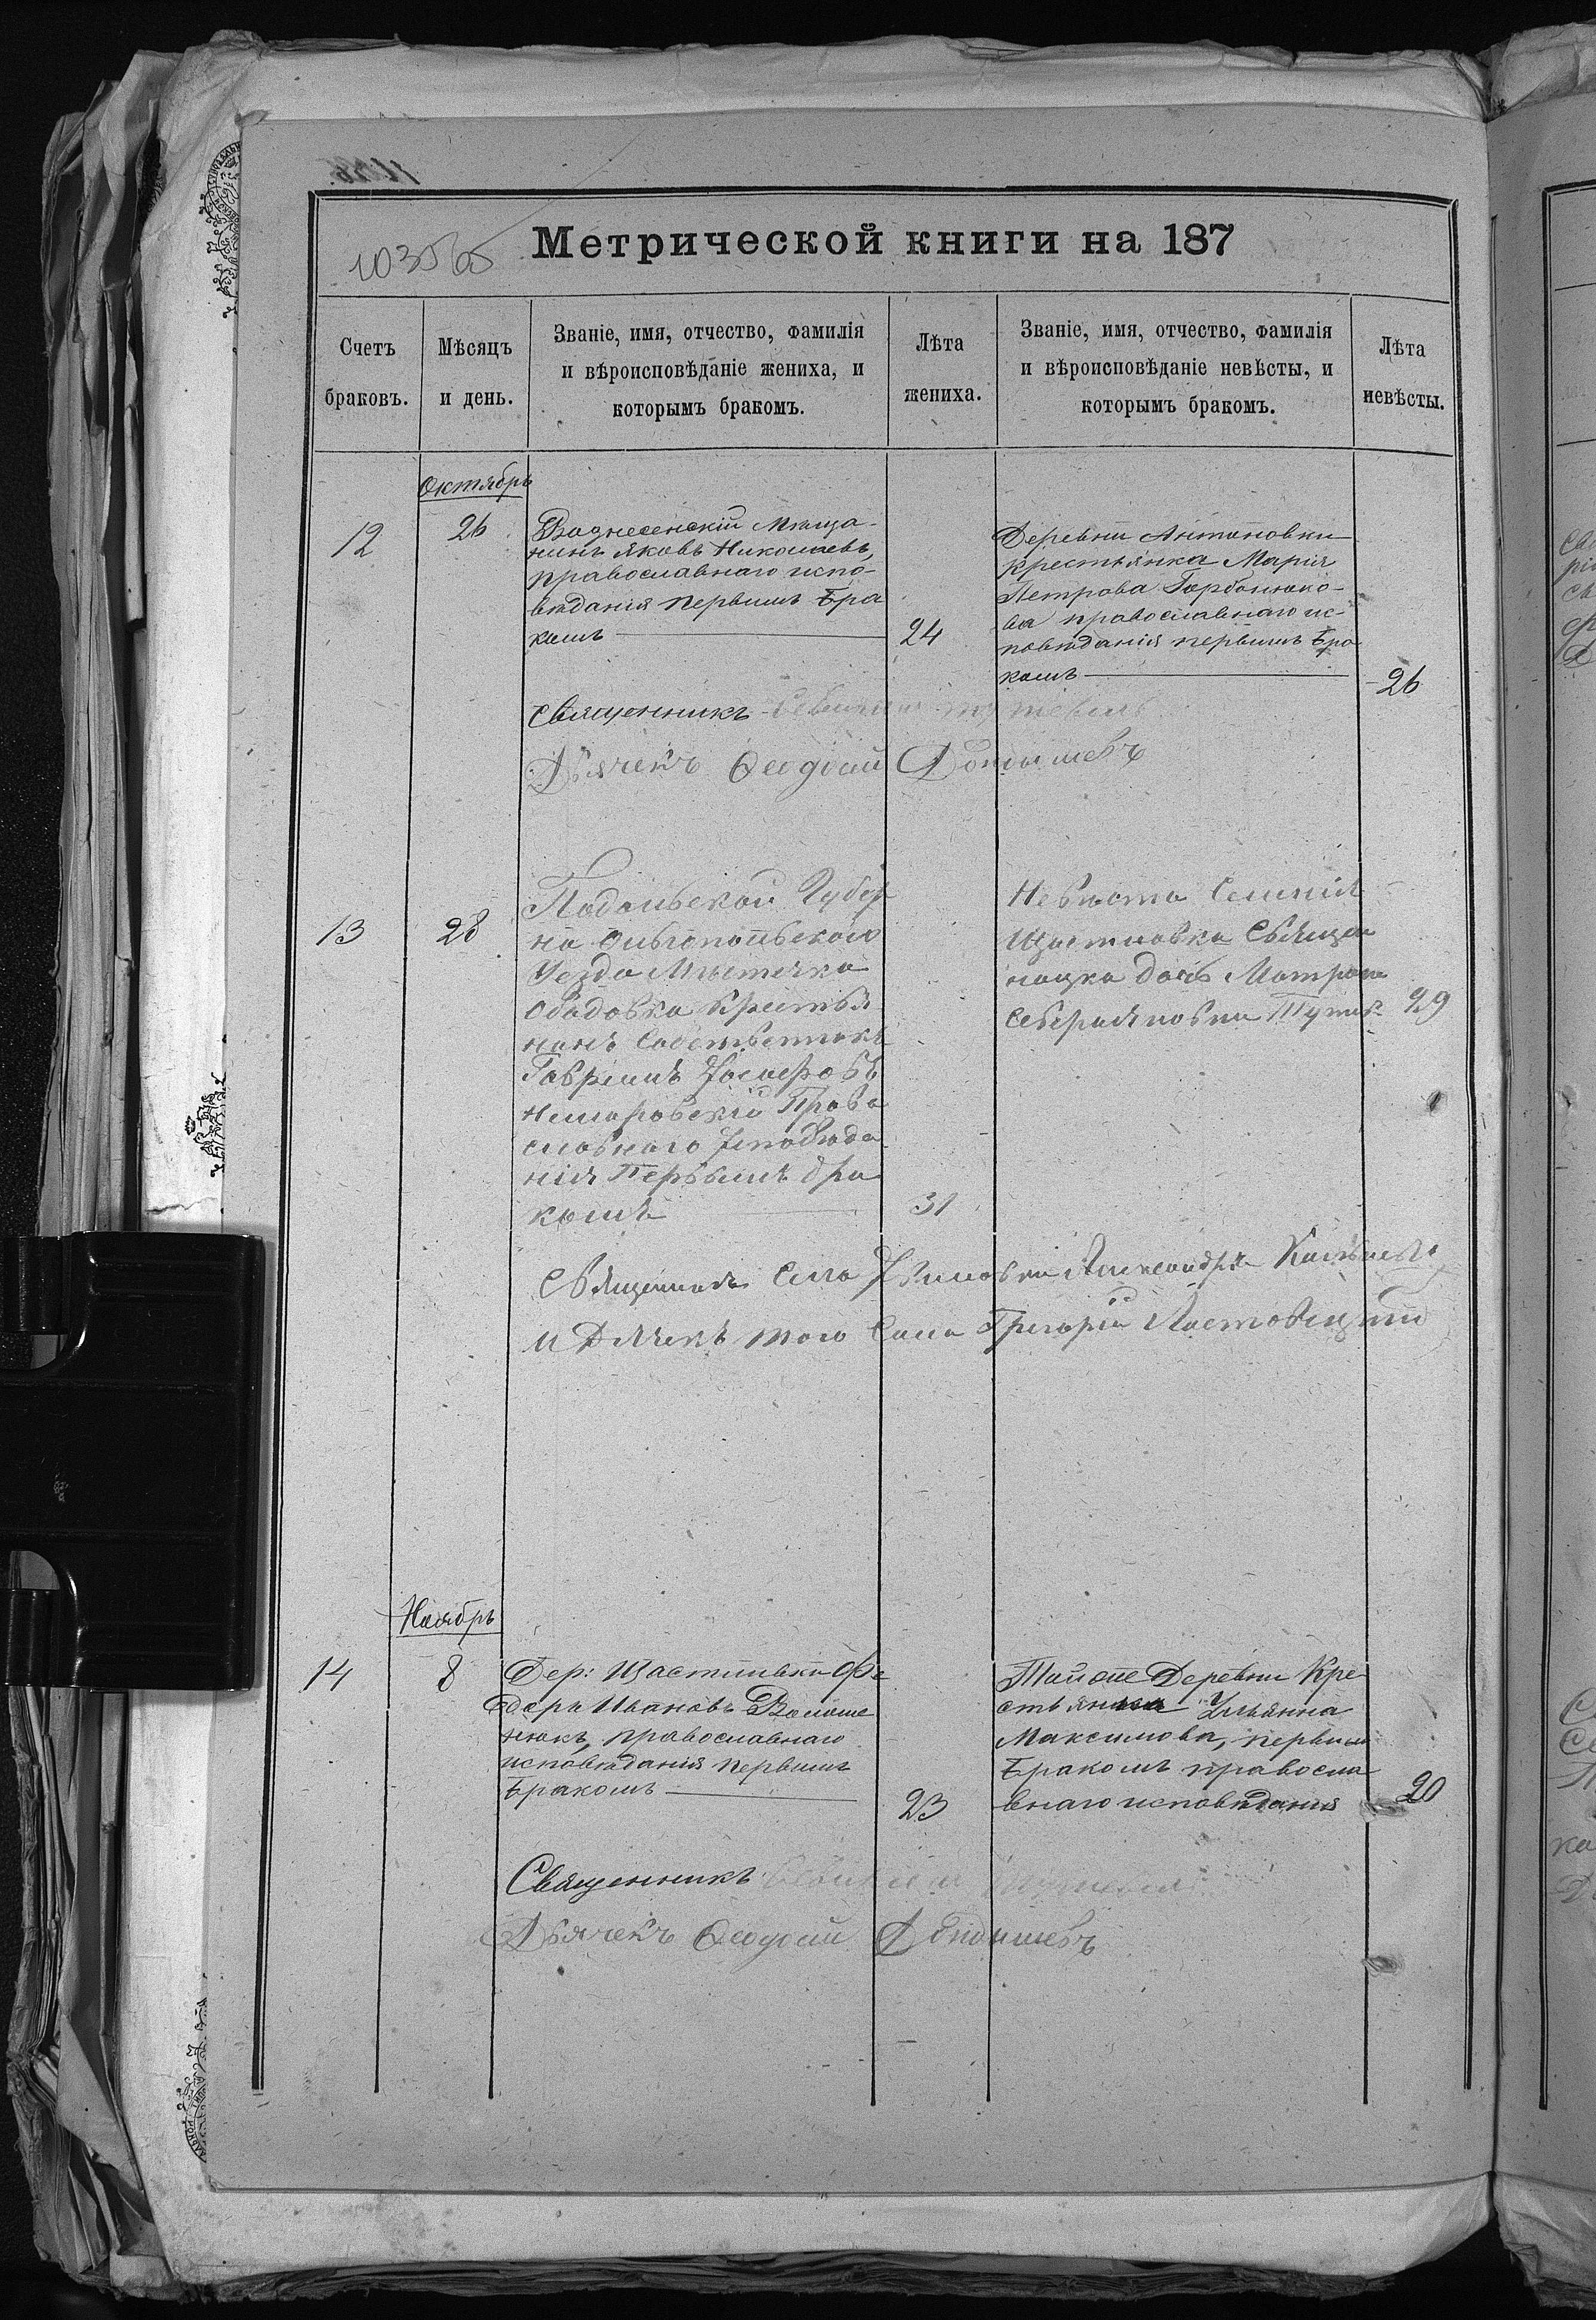 103565
Метрической книги на 187
Счетъ браковъ.
Мѣсяцъ и день.
Званіе, имя, отчество, фамилія
и вѣроисповѣданіе жениха, и
которымъ бракомъ.
Лѣта жениха.
Званіе, имя, отчество, фамилія
и вѣроисповѣданіе невѣсты, и
которымъ бракомъ.
Лѣта невѣсты.
Октябрь
12
26
Вознесенскій Мѣща-
нинъ Яковъ Николаевъ,
православнаго испо-
вѣданія первымъ бра
комъ
24
Деревни Антоновки
крестьянка Марія
Петрова Горбонюко-
ва православнаго ис-
повѣданія первымъ бра
комъ
26
Священникъ
Дьячекъ Ѳеодосій
13
28
Подольской Губер
на Ольгопольского
Уезда Мѣстечка
Ободовка Крестья
нанъ Собственникъ
Гавріилъ
Немировскій Право
славного
нія Первымъ бра
комъ
31
Невѣста Селенія
Щастловка Священ
ницка дочь Матрона
Севериановна
29
Священникъ Села Александръ
и Дячекъ того Села Григорій
Ноябрь
14
8
Дер: Щастливки Ѳе
доръ Ивановъ Волоше
нюкъ, православнаго
исповѣданія первымъ
бракомъ
23
Тойже Деревни Кре
стьянка Ульянна
Максимова, первым
бракомъ правосла
внаго исповѣданія
20
Священникъ
Дьячекъ Ѳеодосій